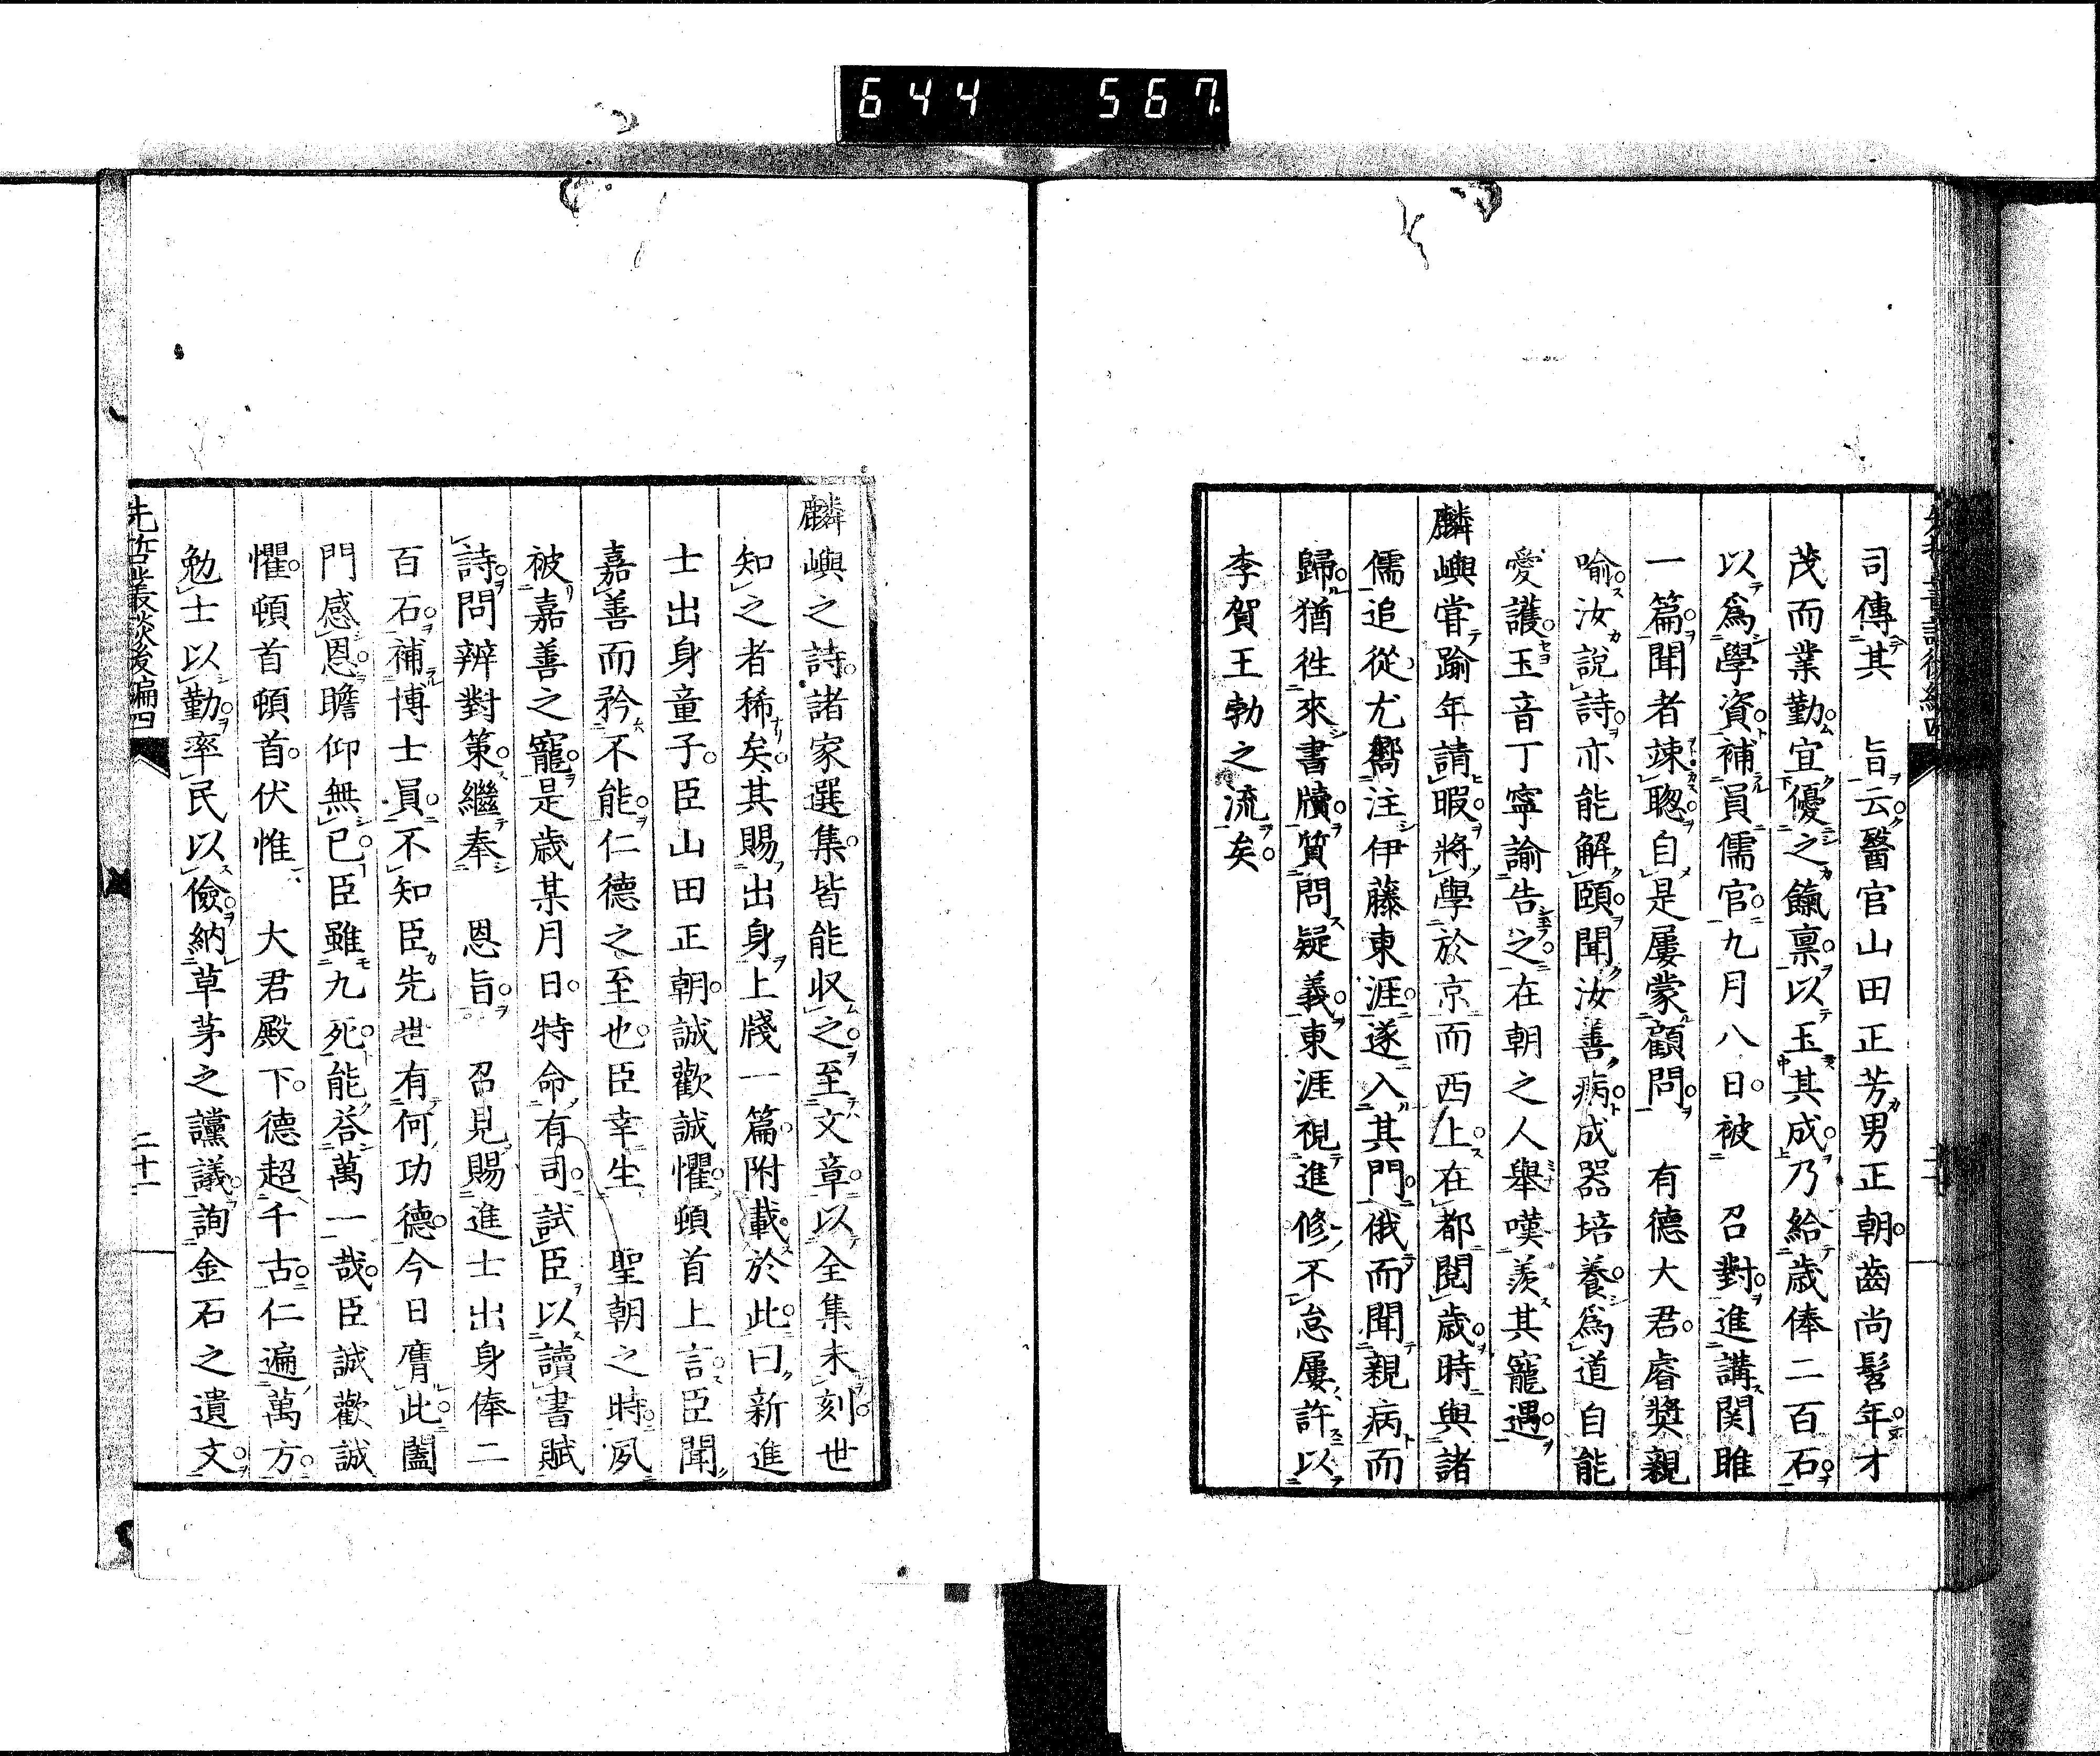 644 567
司傳其 旨云醫官山田正芳男正朝齒尚髫年才
茂而業勤宜優之餼禀以玉其成乃給歲俸二百石
以爲學資補員儒官九月八日被 召對進講関雎
一篇聞者竦聰自是屢蒙顧問 有德大君睿奬親
喻汝說詩亦能解頤聞汝善病成器培養爲道自能
愛護玉音丁寧諭告之在朝之人舉嘆羨其寵遇
麟嶼甞踰年請暇將學於京而西上在都閲歲時與諸
儒追從尤嚮注伊藤東涯遂入其門俄而聞親病而
歸猶徃來書牘質問疑義東涯視進修不怠屢許以
李賀王勃之流矣
麟嶼之詩諸家選集皆能収之至文章以全集未刻世
知之者稀矣其賜出身上牋一篇附載於此曰新進
士出身童子臣山田正朝誠歡誠懼頓首上言臣聞
嘉善而矜不能仁德之至也臣幸生 聖朝之時夙
被嘉善之寵是歲某月日特命有司試臣以讀書賦
詩問辨對策繼奉 恩旨 召見賜進士出身俸二
百石補博士員不知臣先世有何功德今日膺此闔
門感恩瞻仰無已臣雖九死能答萬一哉臣誠歡誠
懼頓首頓首伏惟 大君殿下德超千古仁遍萬方
勉士以勤率民以儉納草茅之讜議詢金石之遺文
先哲叢談後編四
二十一